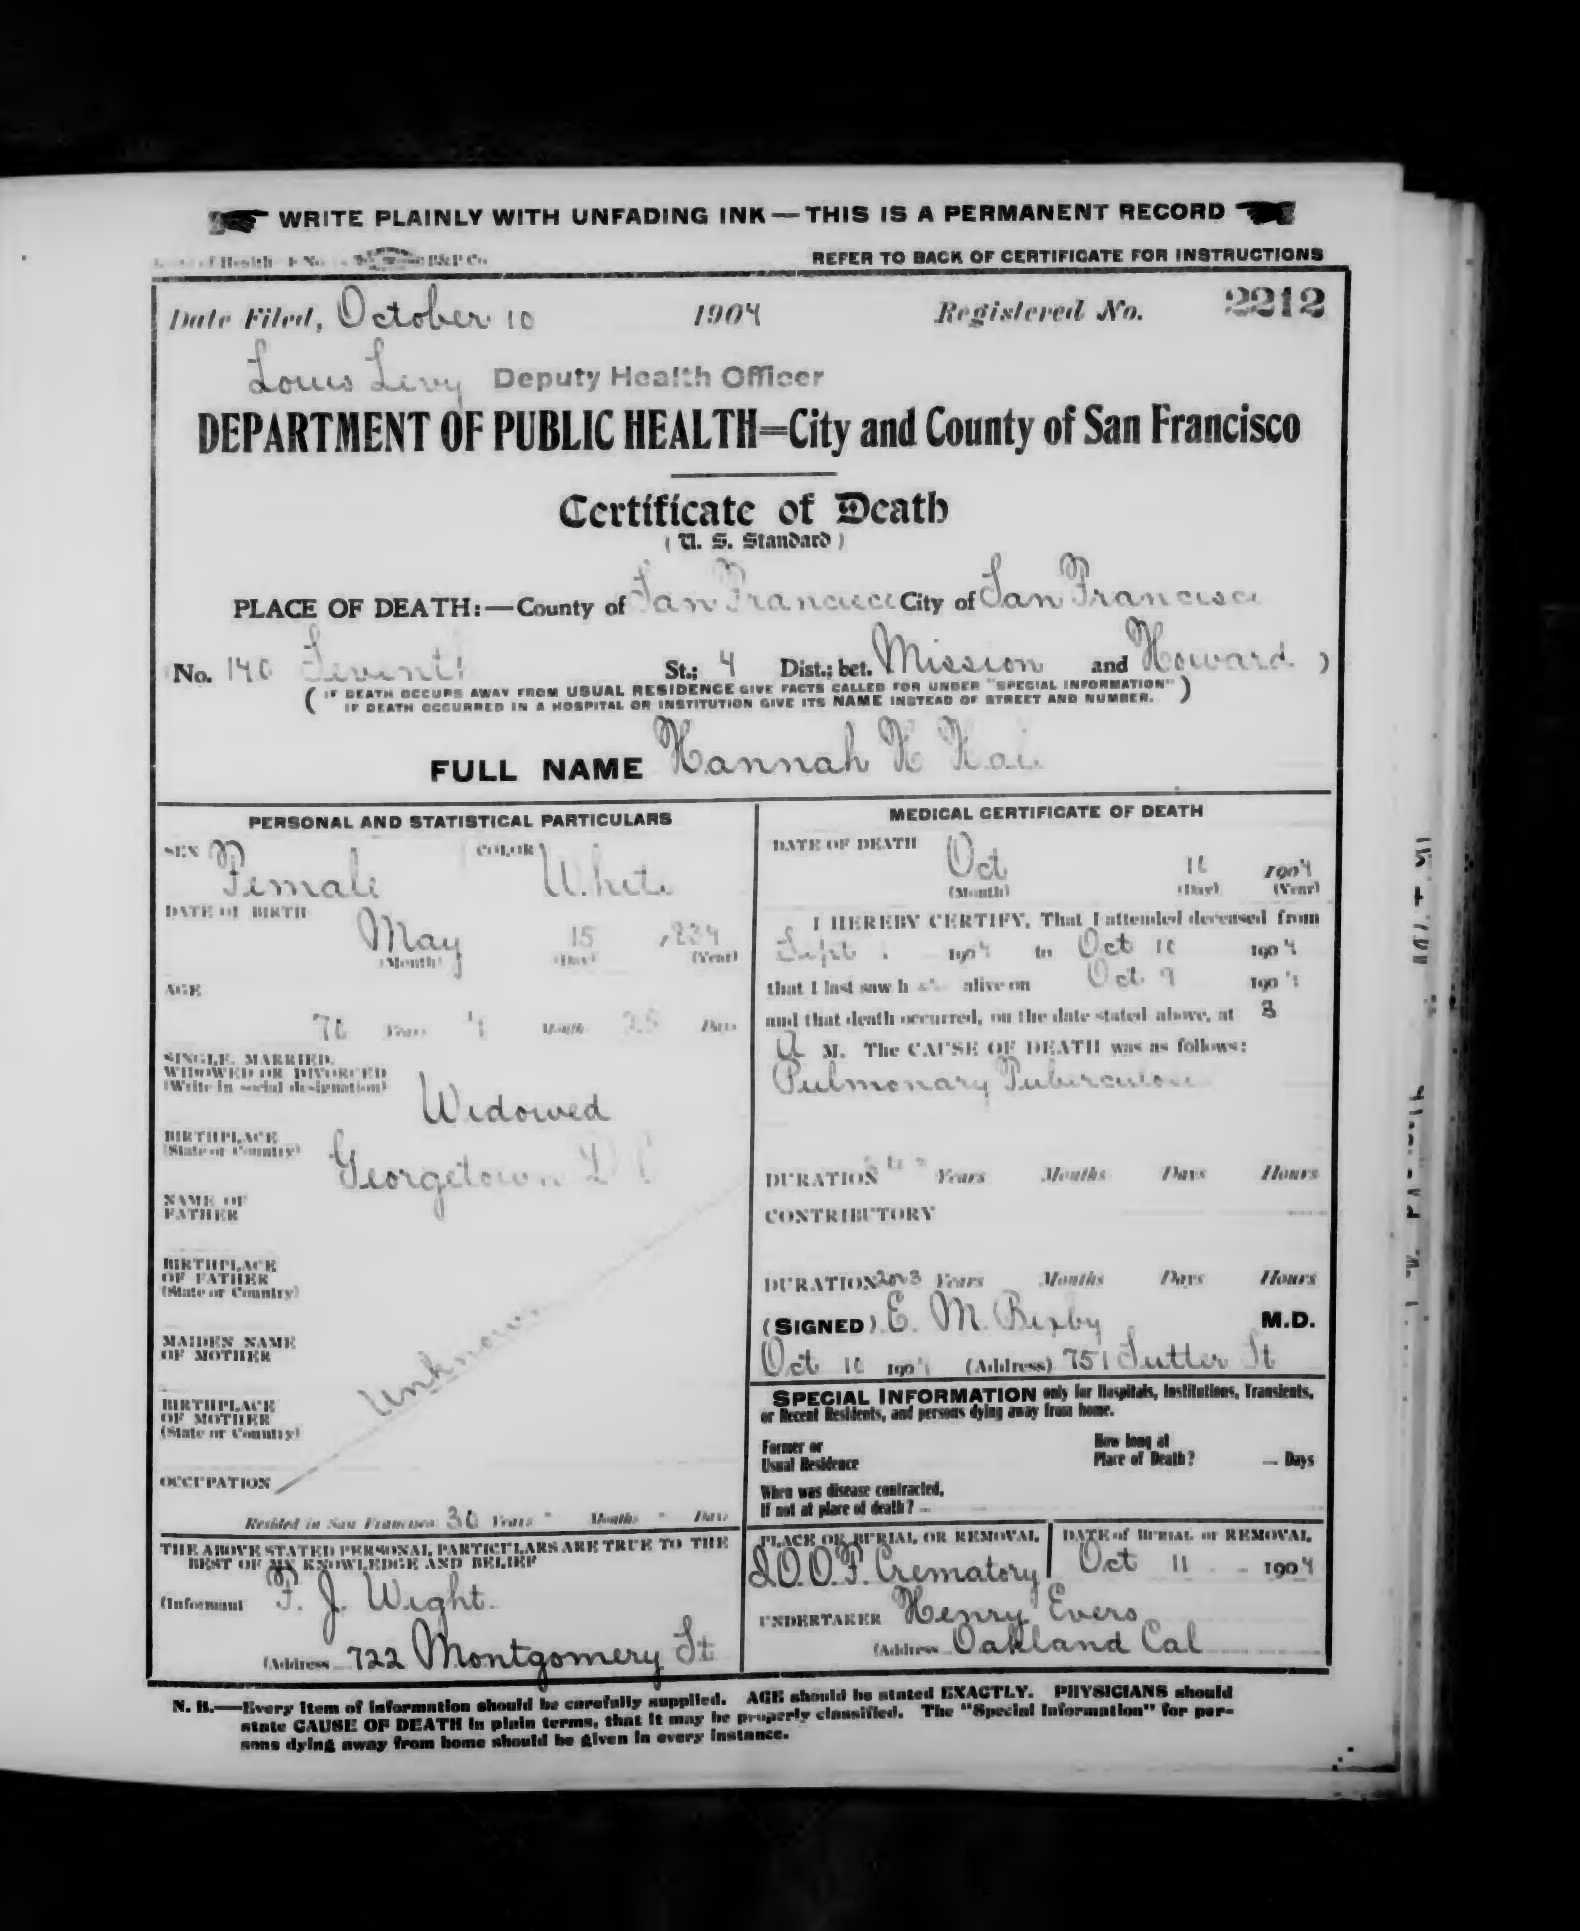 WRITE PLAINLY WITH UNFADING INK — THIS IS A PERMANENT RECORD
of Health P&P Co. REFER TO BACK OF CERTIFICATE FOR INSTRUCTIONS
Date Filed, October 10 1904 Registered No. 2212
Louis Levy Deputy Health Officer
DEPARTMENT OF PUBLIC HEALTH=City and County of San Francisco
Certificate of Death
( U. S. Standard )
PLACE OF DEATH:—County of San Francisco City of San Francisco
No. 140 Seventh St.; 4 Dist.; bet. Mission and Howard )
( IF DEATH OCCURS AWAY FROM USUAL RESIDENCE GIVE FACTS CALLED FOR UNDER "SPECIAL INFORMATION" )
IF DEATH OCCURRED IN A HOSPITAL OR INSTITUTION GIVE ITS NAME INSTEAD OF STREET AND NUMBER.
FULL NAME Hannah H
PERSONAL AND STATISTICAL PARTICULARS
SEX Female COLOR White
DATE OF BIRTH May 15 1834
(Month) (Day) (Year)
AGE
70 Years 4 Months 25 Days
SINGLE, MARRIED,
WIDOWED OR DIVORCED
(Write in social designation) Widowed
BIRTHPLACE
(State or Country) Georgetown D C
NAME OF
FATHER
BIRTHPLACE
OF FATHER
(State or Country)
MAIDEN NAME
OF MOTHER
Unknown
BIRTHPLACE
OF MOTHER
(State or Country)
OCCUPATION
Resided in San Francisco 30 Years - Months - Days
THE ABOVE STATED PERSONAL PARTICULARS ARE TRUE TO THE
BEST OF MY KNOWLEDGE AND BELIEF
(Informant F. J. Wight.
(Address 722 Montgomery St
MEDICAL CERTIFICATE OF DEATH
DATE OF DEATH Oct 10 1904
(Month) (Day) (Year)
I HEREBY CERTIFY, That I attended deceased from
Sept 1 1904 to Oct 10 1904
that I last saw h alive on Oct 9 1904
and that death occurred, on the date stated above, at 3
A M. The CAUSE OF DEATH was as follows:
Pulmonary Tuberculosis
DURATION Years Months Days Hours
CONTRIBUTORY
DURATION 2 or 3 Years Months Days Hours
(SIGNED) E. M. Bixby M.D.
Oct 10 1904 (Address) 751 Sutter St
SPECIAL INFORMATION only for Hospitals, Institutions, Transients,
or Recent Residents, and persons dying away from home.
Former or
Usual Residence
How long at
Place of Death? — Days
When was disease contracted,
If not at place of death? —
PLACE OF BURIAL OR REMOVAL DATE of BURIAL or REMOVAL
I.O.O.F. Crematory Oct 11 1904
UNDERTAKER Henry Evers
(Address Oakland Cal
N. B.—Every item of information should be carefully supplied. AGE should be stated EXACTLY. PHYSICIANS should
state CAUSE OF DEATH in plain terms, that it may be properly classified. The "Special Information" for per-
sons dying away from home should be given in every instance.